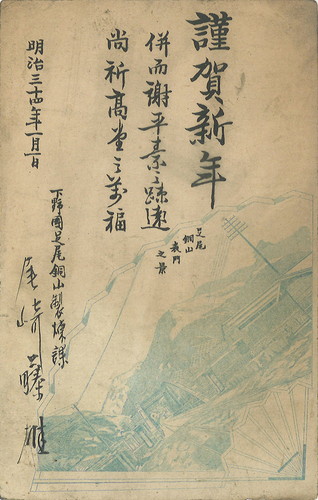 謹賀新年
併而謝平素之疎遠
尚祈高堂之萬福
明治三十四年一月一日
下野國足尾銅山製煉課
尾崎藤雄
足尾
銅山
表門
之景